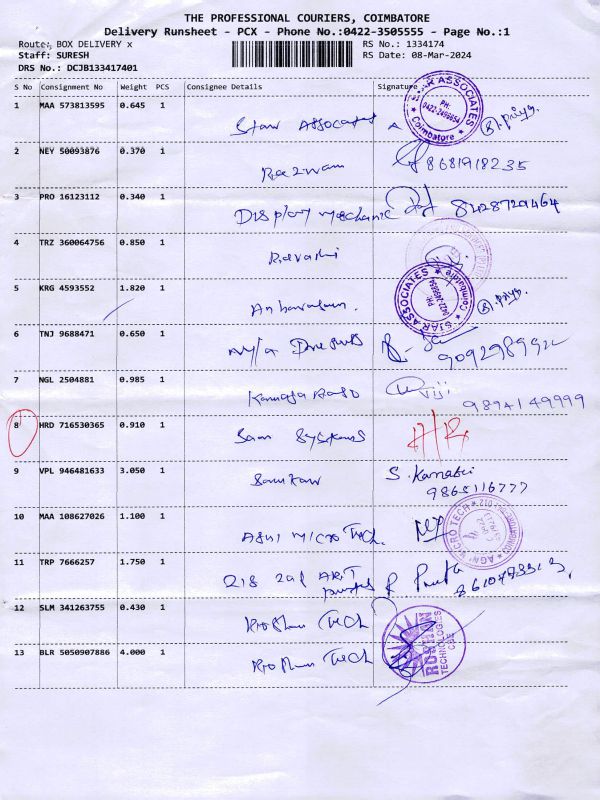 THE PROFESSIONAL COURIERS, COIMBATORE
Delivery Runsheet - PCX - Phone No.:0422-3505555 - Page No.:1
Route: BOX DELIVERY x RS No.: 1334174
Staff: SURESH RS Date: 08-Mar-2024
DRS No.: DCJB133417401
S No Consignment No Weight PCS Consignee Details Signature
1 MAA 573813595 0.645 1 Star Associates
STAR ASSOCIATES PH: 0422-2496654 Coimbatore
2 NEY 50093876 0.370 1 8681918235
3 PRO 16123112 0.340 1 Display mechanic 8428729464
4 TRZ 360064756 0.850 1 Revathi
5 KRG 4593552 1.820 1
STAR ASSOCIATES PH: 0422-2496654 Coimbatore
6 TNJ 9688471 0.650 1
7 NGL 2504881 0.985 1 Viji
9894149999
8 HRD 716530365 0.910 1 Sam Systems
9 VPL 946481633 3.050 1 S.
9865116777
10 MAA 108627026 1.100 1 Agni Micro Tech.
AGNI MICRO TECH
11 TRP 7666257 1.750 1
12 SLM 341263755 0.430 1 Roshan Tech
13 BLR 5050907886 4.000 1 Roshan Tech
ROSHAN TECHNOLOGIES CBE